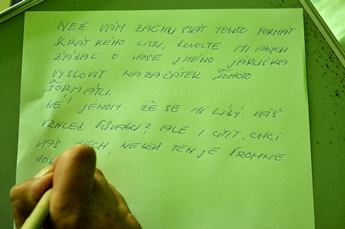 NEŽ VÁM ZAČNU PSÁT TENTO FORMÁT
KRÁTKEHO LISTU, DOVOLTE MI ABYCH
ŽÁDAL O VAŠE JMÉNO JARUŠKA
VYSLOVIT NAZAČÁTEK TOHOTO
FORMÁTU.
NE JENOM ŽE SE MI LÍBÍ VÁŠ
VZHLED PŮVABU? ALE I CÍTIT, CHCI
VÁŠ DECH, NEBOŤ TEN JE PROMNE